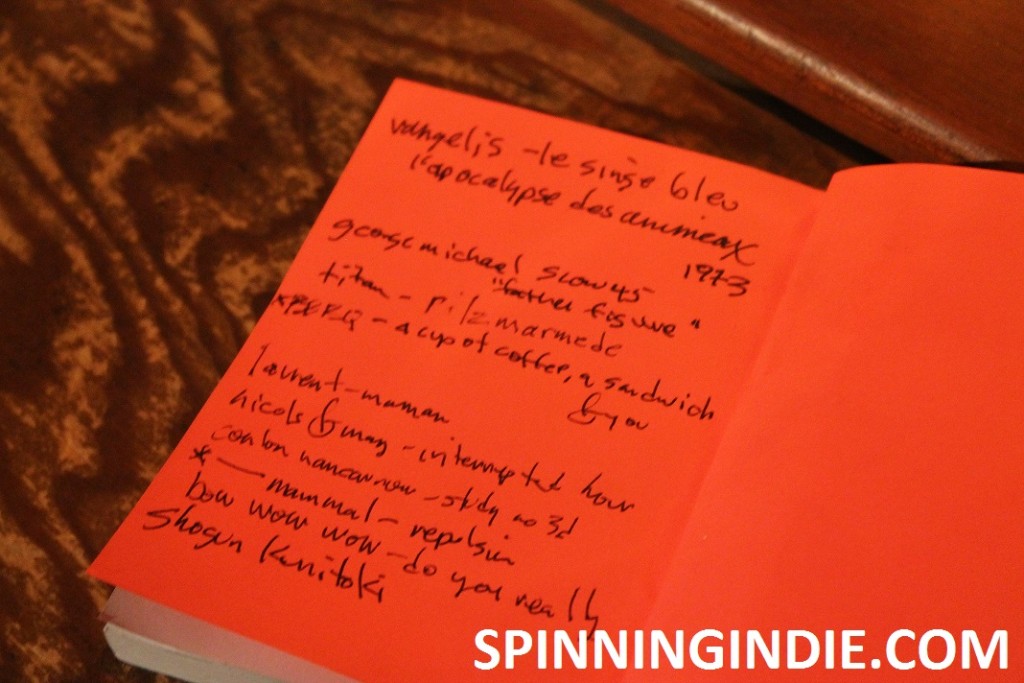 vangelis - le singe bleu
l'apocalypse des animeax
1973
george michael slowus
"father figure"
titan - pilzmarmede
- a cup of coffee, a sandwich
& you
laurent - maman
nicols & may - interrupted hour
conlon nancarrow - study no 3d
* — mammal - repulsion
bow wow wow - do you really
Shogun Kunitoki
SPINNINGINDIE.COM